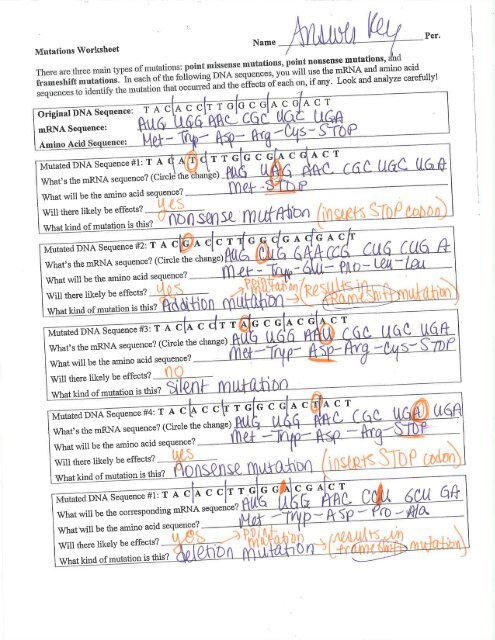 Name Answer Key Per.
Mutations Worksheet
There are three main types of mutations: point missense mutations, point nonsense mutations, and
frameshift mutations. In each of the following DNA sequences, you will use the mRNA and amino acid
sequences to identify the mutation that occurred and the effects of each on, if any. Look and analyze carefully!
Original DNA Sequence: T A C A C C T T G G C G A C G A C T
mRNA Sequence: AUG UGG AAC CGC UGC UGA
Amino Acid Sequence: Met - Trp - Asp - Arg - Cys - STOP
Mutated DNA Sequence #1: T A C A T C T T G G C G A C G A C T
What's the mRNA sequence? (Circle the change) AUG UAG AAC CGC UGC UGA
What will be the amino acid sequence? Met - STOP
Will there likely be effects? yes
What kind of mutation is this? nonsense mutation (inserts STOP codon)
Mutated DNA Sequence #2: T A C G A C C T T G G C G A C G A C T
What's the mRNA sequence? (Circle the change) AUG CUG GAA CCG CUG CUG A
What will be the amino acid sequence? Met - Tryp - Glu - Pro - Leu - Leu
Will there likely be effects? yes
What kind of mutation is this? Addition mutation → (results in frameshift mutation)
Mutated DNA Sequence #3: T A C A C C T T A G C G A C G A C T
What's the mRNA sequence? (Circle the change) AUG UGG AAU CGC UGC UGA
What will be the amino acid sequence? Met - Tryp - Asp - Arg - Cys - STOP
Will there likely be effects? no
What kind of mutation is this? Silent mutation
Mutated DNA Sequence #4: T A C A C C T T G G C G A C T A C T
What's the mRNA sequence? (Circle the change) AUG UGG AAC CGC UGA UGA
What will be the amino acid sequence? Met - Tryp - Asp - Arg - STOP
Will there likely be effects? yes
What kind of mutation is this? Nonsense mutation (inserts STOP codon)
Mutated DNA Sequence #1: T A C A C C T T G G G A C G A C T
What will be the corresponding mRNA sequence? AUG UGG AAC CCU GCU GA
What will be the amino acid sequence? Met - Tryp - Asp - Pro - Ala
Will there likely be effects? yes
What kind of mutation is this? deletion mutation → (results in frameshift mutation)